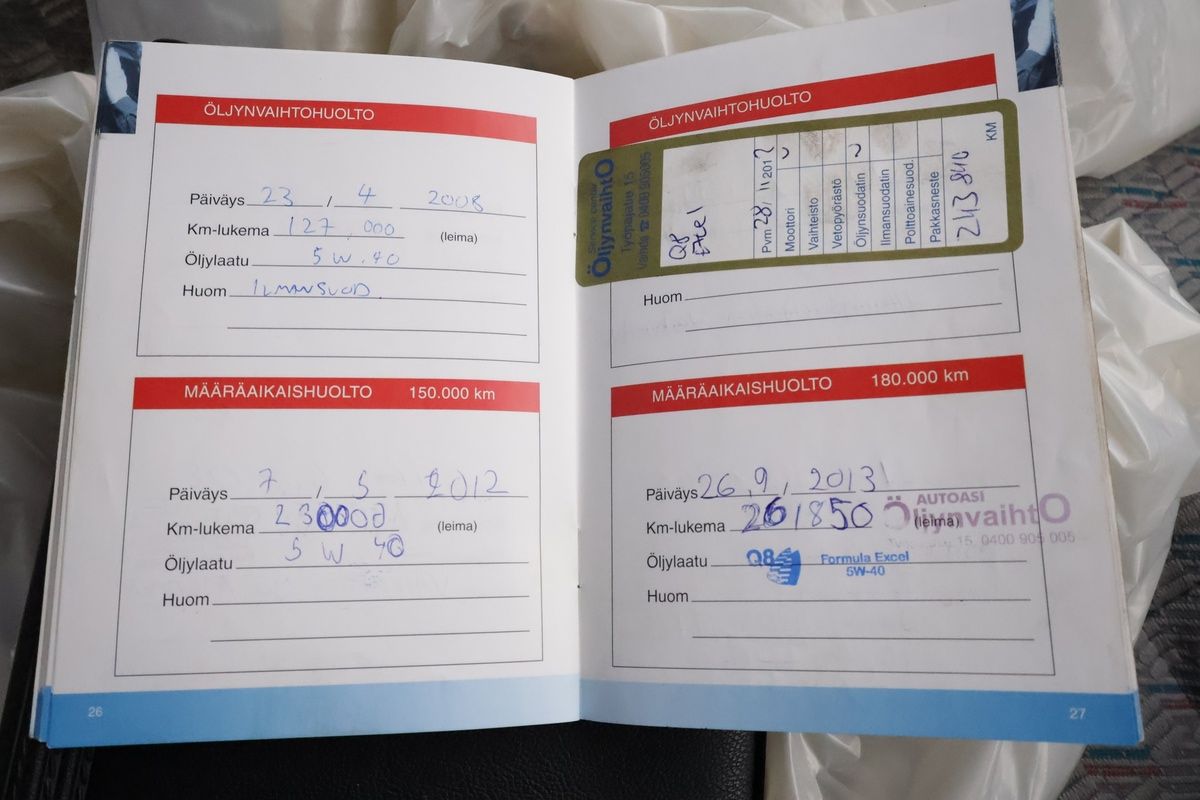 ÖLJYNVAIHTOHUOLTO
Päiväys 23 / 4 2008
Km-lukema 127.000 (leima)
Öljylaatu 5W.40
Huom ILMANSUOD.
MÄÄRÄAIKAISHUOLTO 150.000 km
Päiväys 7 / 5 2012
Km-lukema 230000 (leima)
Öljylaatu 5W 40
Huom
26
ÖLJYNVAIHTOHUOLTO
ÖljynvaihtO
Työpajatie 15
Vantaa ☎ 0400 905005
Q8
Pvm 28/11 2012
Moottori
Vaihteisto
Vetopyörästö
Öljynsuodatin
Ilmansuodatin
Polttoainesuod.
Pakkasneste
243 840 KM
Huom
MÄÄRÄAIKAISHUOLTO 180.000 km
Päiväys 26.9 / 2013
Km-lukema 261850 (leima)
AUTOASI
ÖljynvaihtO
15, 0400 905 005
Öljylaatu Q8 Formula Excel
5W-40
Huom
27